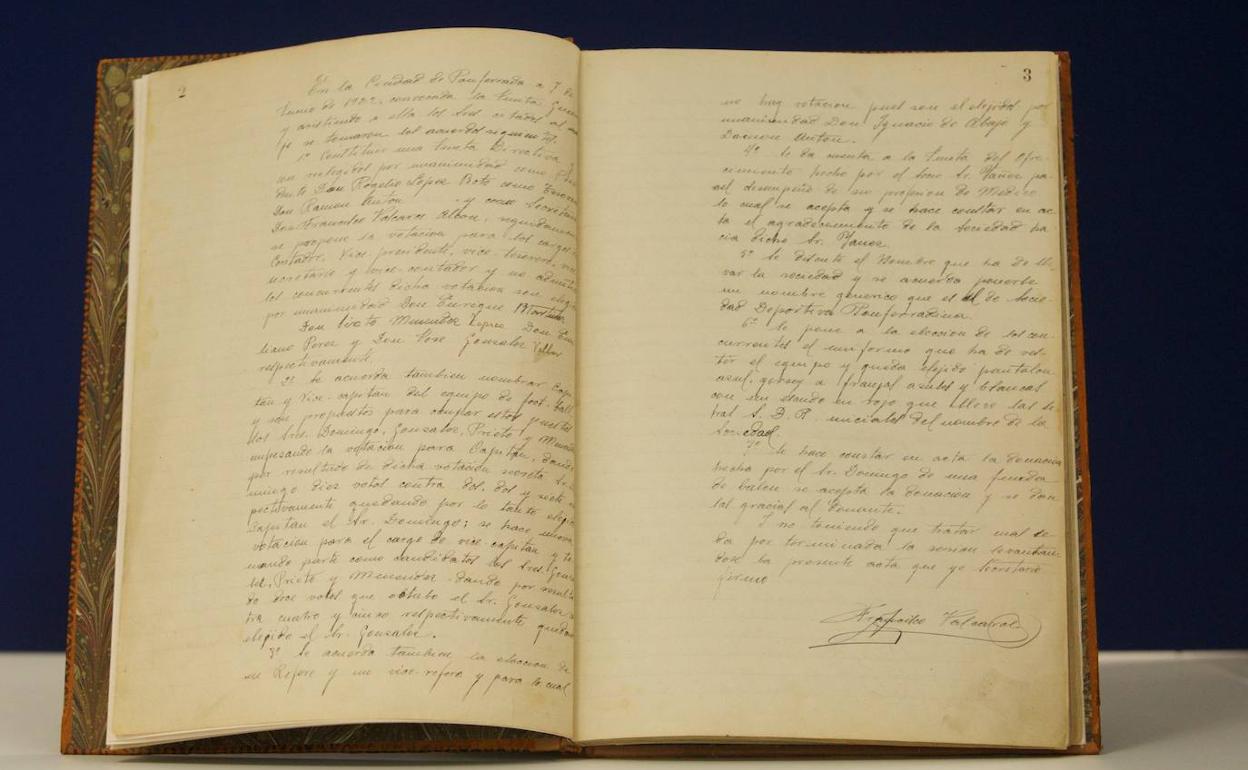 2
En la Ciudad de Ponferrada a 7 de
Junio de 1922, convocada la Junta Gene
y asistiendo a ella los Sres citados al
se tomaron los acuerdos siguientes.
1º Constituir una Junta Directiva
por unanimidad como Presi
dente Don Rogelio López Boto como Tesorero
Don Ramon Anton y como Secretario
Don Francisco Valcarce Albon, seguidamen
se propone la votacion para los cargos
Contador, Vice-presidente, vice-tesorero, vice
secretario y vice-contador y no admitien
los concurrentes dicha votacion son elegi
por unanimidad Don Enrique Martinez
Don Menendez Lopez Don Emi
liano Perez y Don Jose Gonzalez Villar
respectivamente.
2º Se acuerda tambien nombrar Capi
tan y Vice-capitan del equipo de foot-ball
y son propuestos para ocupar estos puestos
los Sres. Domingo, Gonzalez, Prieto y Menendez
empezando la votacion para Capitan, dando
por resultado de dicha votación secreta Sr.
mingo diez votos contra dos, dos y siete
pectivamente quedando por lo tanto elegido
Capitan el Sr. Domingo; se hace nueva
votacion para el cargo de vice-capitan y to
mando parte como candidatos los Sres. Gonza
lez, Prieto y Menendez dando por resulta
do doce votos que obtubo el Sr. Gonzalez
tra cuatro y cinco respectivamente quedan
elegido el Sr. Gonzalez.
3º Se acuerda tambien, la eleccion de
un Refere y un vice-refere y para lo cual
3
no hay votacion pues son elegidos por
unanimidad Don Ignacio de Abajo y
Ramon Anton.
4º Se da cuenta a la Junta del ofre-
cimiento hecho por el socio Sr. Yañez pa-
el desempeño de su profesion de Medico
lo cual se acepta y se hace constar en ac-
ta el agradecimiento de la Sociedad ha-
cia dicho Sr. Yañez.
5º Se discute el Nombre que ha de lle-
var la sociedad y se acuerda ponerle
un nombre generico que es el de Socie-
dad Deportiva Ponferradina.
6º Se pone a la eleccion de los con-
currentes el uniforme que ha de ves-
tir el equipo y queda elejido pantalon
azul, gersey a franjas azules y blancas
con un escudo en rojo que lleve las le-
tras S. D. P. iniciales del nombre de la
Sociedad.
7º Se hace constar en acta la donacion
hecha por el Sr. Domingo de una funda
de balon se acepta la donacion y se dan
las gracias al donante.
Y no teniendo que tratar mas se
da por terminada la sesion levantan-
dose la presente acta que yo Secretario
firmo
Francisco Valcarce